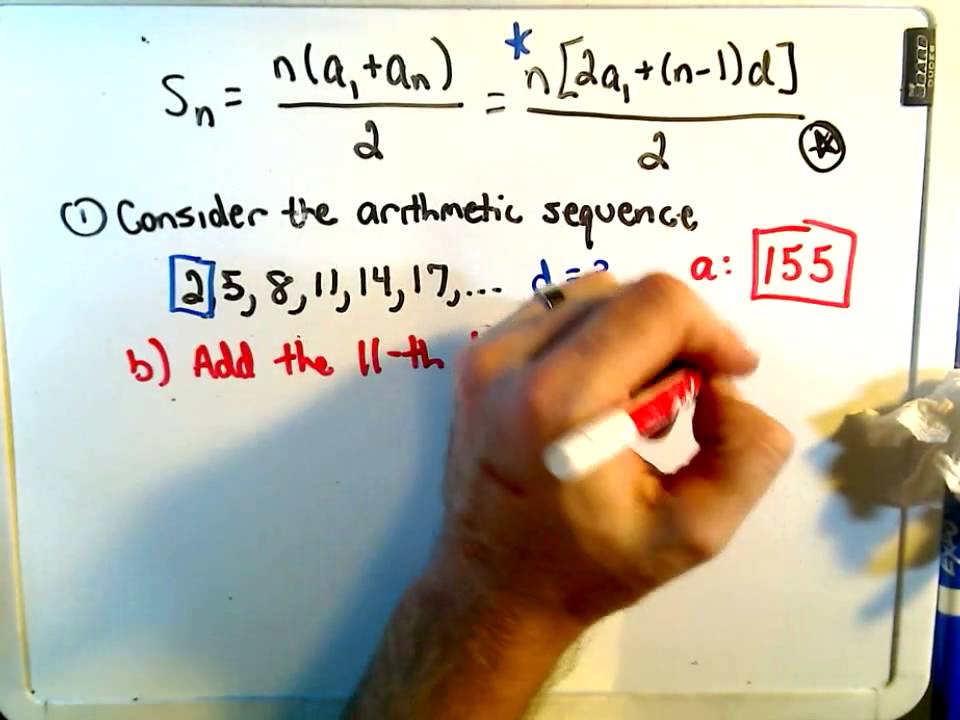 Sn = n(a₁+an)/2 = *n[2a₁+(n-1)d]/2 *
① Consider the arithmetic sequence
2, 5, 8, 11, 14, 17, ... d = a: 155
b) Add the 11-th
BOARD DUDES
EXPO